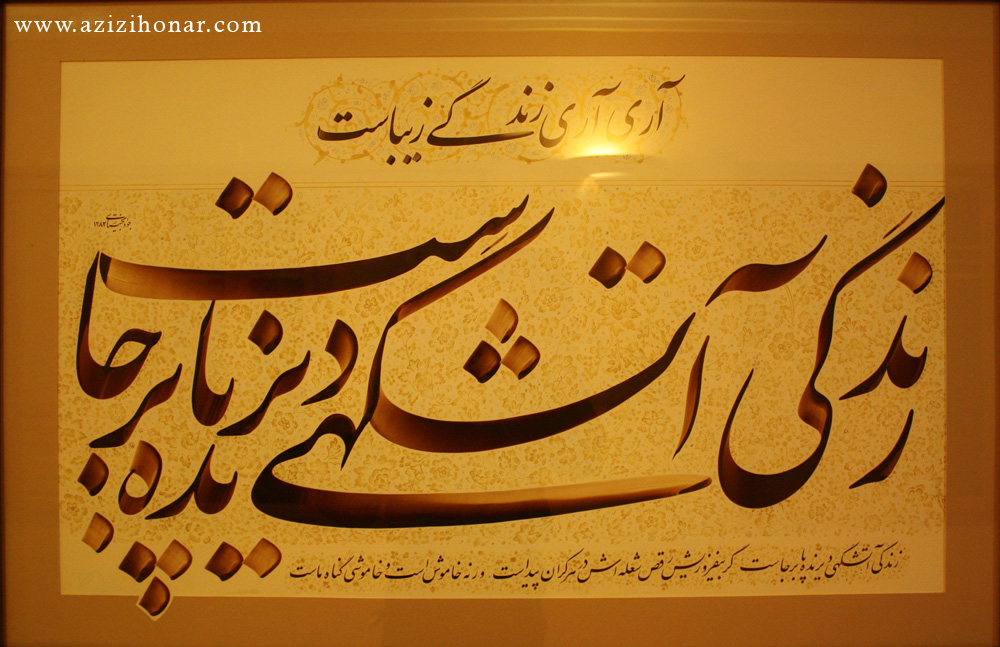 www.azizihonar.com
آری آری زندگی زیباست
زندگی آتشگهی دیرنده پابرجاست
جواد بختیاری ۱۳۸۳
زندگی آتشگهی دیرنده پابرجاست گر بیفروزیش رقص شعله اش در هر کران پیداست ورنه خاموش است و خاموشی گناه ماست